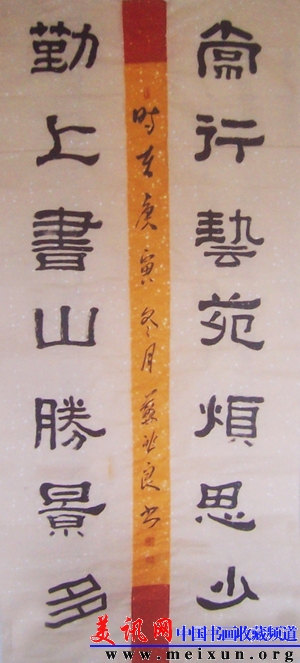 常行藝苑煩思少
時在庚寅冬月蘇良书
勤上書山勝景多
美讯网 中国书画收藏频道
www.meixun.org